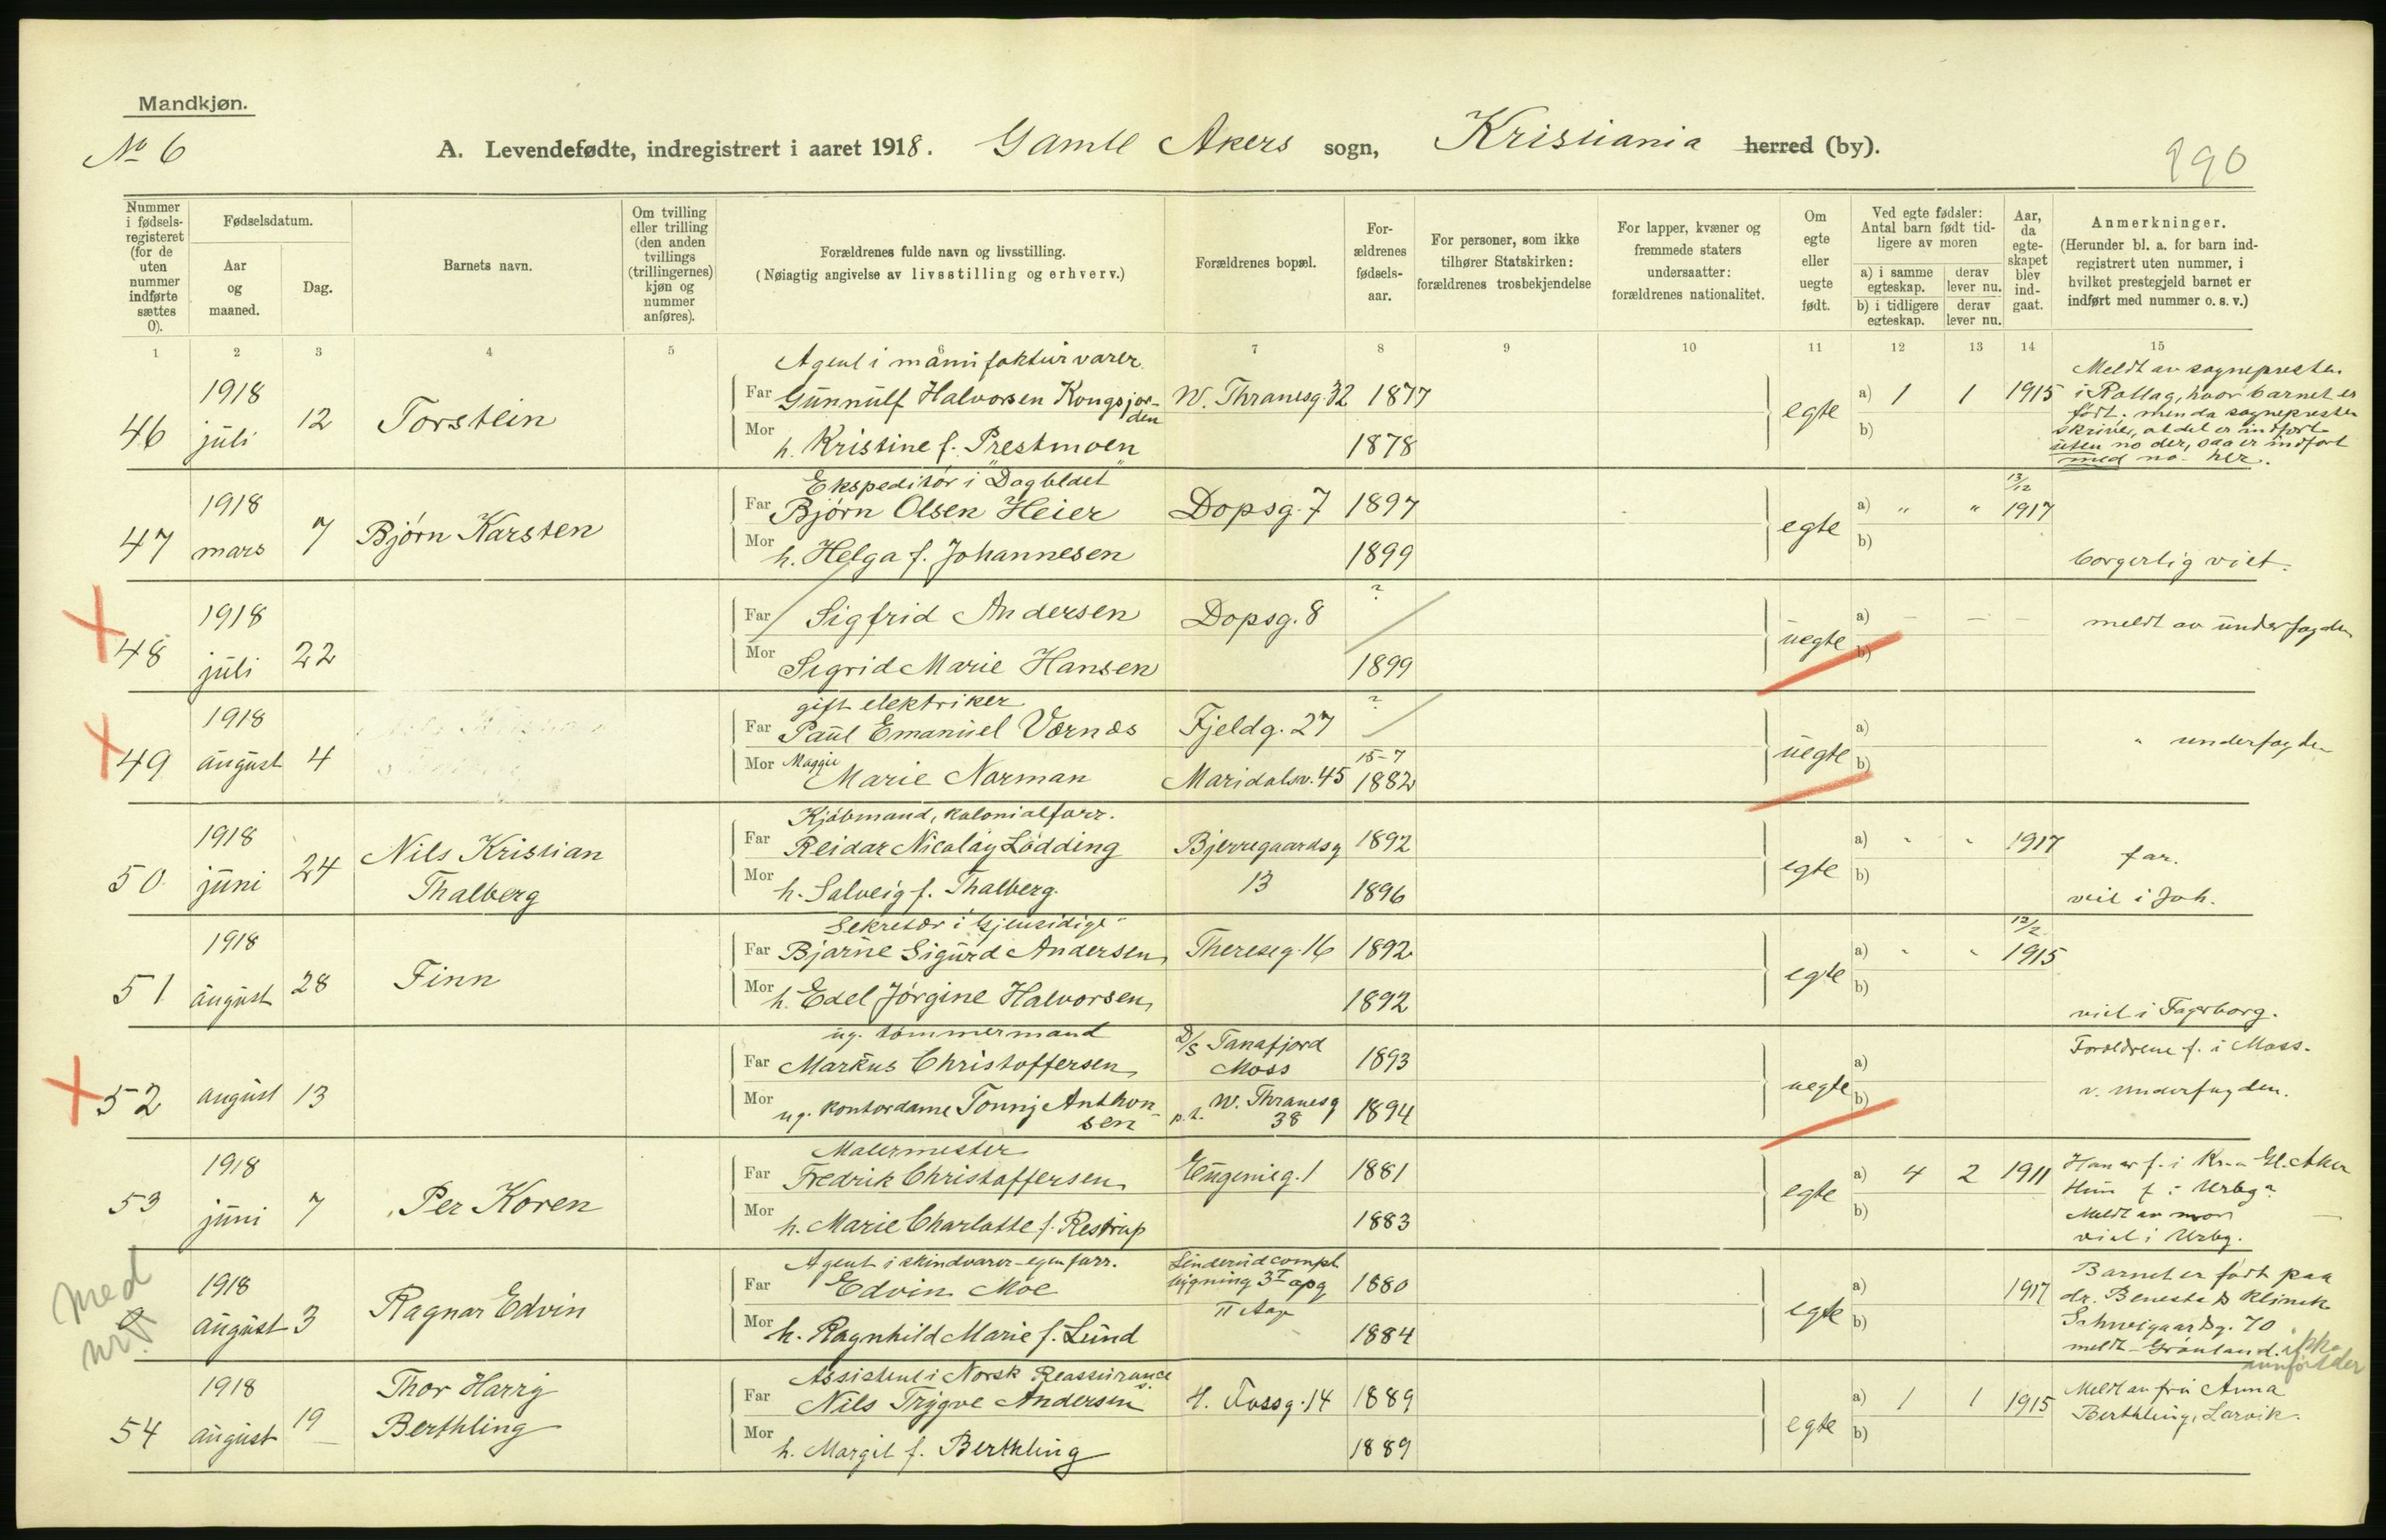 Mandkjøn.
No 6
A. Levendefødte, indregistrert i aaret 1918. Gamle Akers sogn, Kristiania herred (by).
190
Nummer i fødsels-registeret (for de uten nummer indførte sættes 0).
Fødselsdatum.
Aar og maaned.
Dag.
Barnets navn.
Om tvilling eller trilling (den anden tvillings (trillingernes) kjøn og nummer anføres).
Forældrenes fulde navn og livsstilling.
(Nøiagtig angivelse av livsstilling og erhverv.)
Forældrenes bopæl.
For-ældrenes fødsels-aar.
For personer, som ikke tilhører Statskirken: forældrenes trosbekjendelse
For lapper, kvæner og fremmede staters undersaatter: forældrenes nationalitet.
Om egte eller uegte født.
Ved egte fødsler: Antal barn født tid-ligere av moren
a) i samme egteskap. derav lever nu.
b) i tidligere egteskap. derav lever nu.
Aar, da egte-skapet blev ind-gaat.
Anmerkninger.
(Herunder bl. a. for barn ind-registrert uten nummer, i hvilket prestegjeld barnet er indført med nummer o. s. v.)
1 2 3 4 5 6 7 8 9 10 11 12 13 14 15
Agent i manufakturvarer
46 1918 juli 12 Torstein
Far Gunnulf Halvorsen Kongsjorden W. Thranesg. 32 1877
Mor h. Kristine f. Prestmoen 1878
egte a) 1 1 1915
b)
Meldt av sognepresten
i Rollag, hvor barnet er
født. men da sognepresten
skriver, at det er indført
uten no der, saa er indført
med no her.
Ekspeditør i "Dagbladet"
47 1918 mars 7 Bjørn Karsten
Far Bjørn Olsen Heier Dopsg. 7 1897
Mor h. Helga f. Johannesen 1899
egte a) " " 13/12 1917
b)
borgerlig viet.
48 1918 juli 22
Far Sigfrid Andersen Dopsg. 8 ?
Mor Sigrid Marie Hansen 1899
uegte a) - - -
b)
meldt av underfogden
gift elektriker
49 1918 august 4
Far Paul Emanuel Værnes Fjeldg. 27 ?
Mor Maggie Marie Norman Maridalsv. 45 15-7 1882
uegte a)
b)
" underfogden
Kjøbmand, kolonialforr.
50 1918 juni 24 Nils Kristian Thalberg
Far Reidar Nicolay Lødding Bjerregaardsg 13 1892
Mor h. Solveig f. Thalberg. 1896
egte a) " " 1917
b)
far.
viet i Joh.
Sekretær i Gjensidige"
51 1918 august 28 Finn
Far Bjarne Sigurd Andersen Thereseg. 16 1892
Mor h. Edel Jørgine Halvorsen 1892
egte a) " " 12/2 1915
b)
viet i Fagerborg.
ug. tømmermand
52 august 13
Far Markus Christoffersen D/S Tanafjord Moss 1893
Mor ug. kontordame Tonny Anthonsen p.t. W. Thranesg 38 1894
uegte a)
b)
Forældrene f. i Moss.
v. underfogden.
Malermester
53 1918 juni 7 Per Koren
Far Fredrik Christoffersen Eugenieg. 1 1881
Mor h. Marie Charlotte f. Restrup 1883
egte a) 4 2 1911
b)
Han er f. i Kr.a Gl. Aker
Hun f. i Urbg
Meldt av mor
viet i Urbg.
Agent i skindvarer - egen forr.
med nr.
0 1918 august 3 Ragnar Edvin
Far Edvin Moe
Linderud compl bygning 3 I opg II 1880
Mor h. Ragnhild Marie f. Lund 1884
egte a) 1917
b)
Barnet er født paa
dr. Benestads klinik
Schweigaardsg. 70
meldt Grønland. ikke
anført der
Assistent i Norsk Reassurance
54 1918 august 19 Thor Harry Berthling
Far Nils Trygve Andersen H. Fossg. 14 1889
Mor h. Margit f. Berthling 1889
egte a) 1 1 1915
b)
Meldt av fru Anna
Berthling, Larvik.